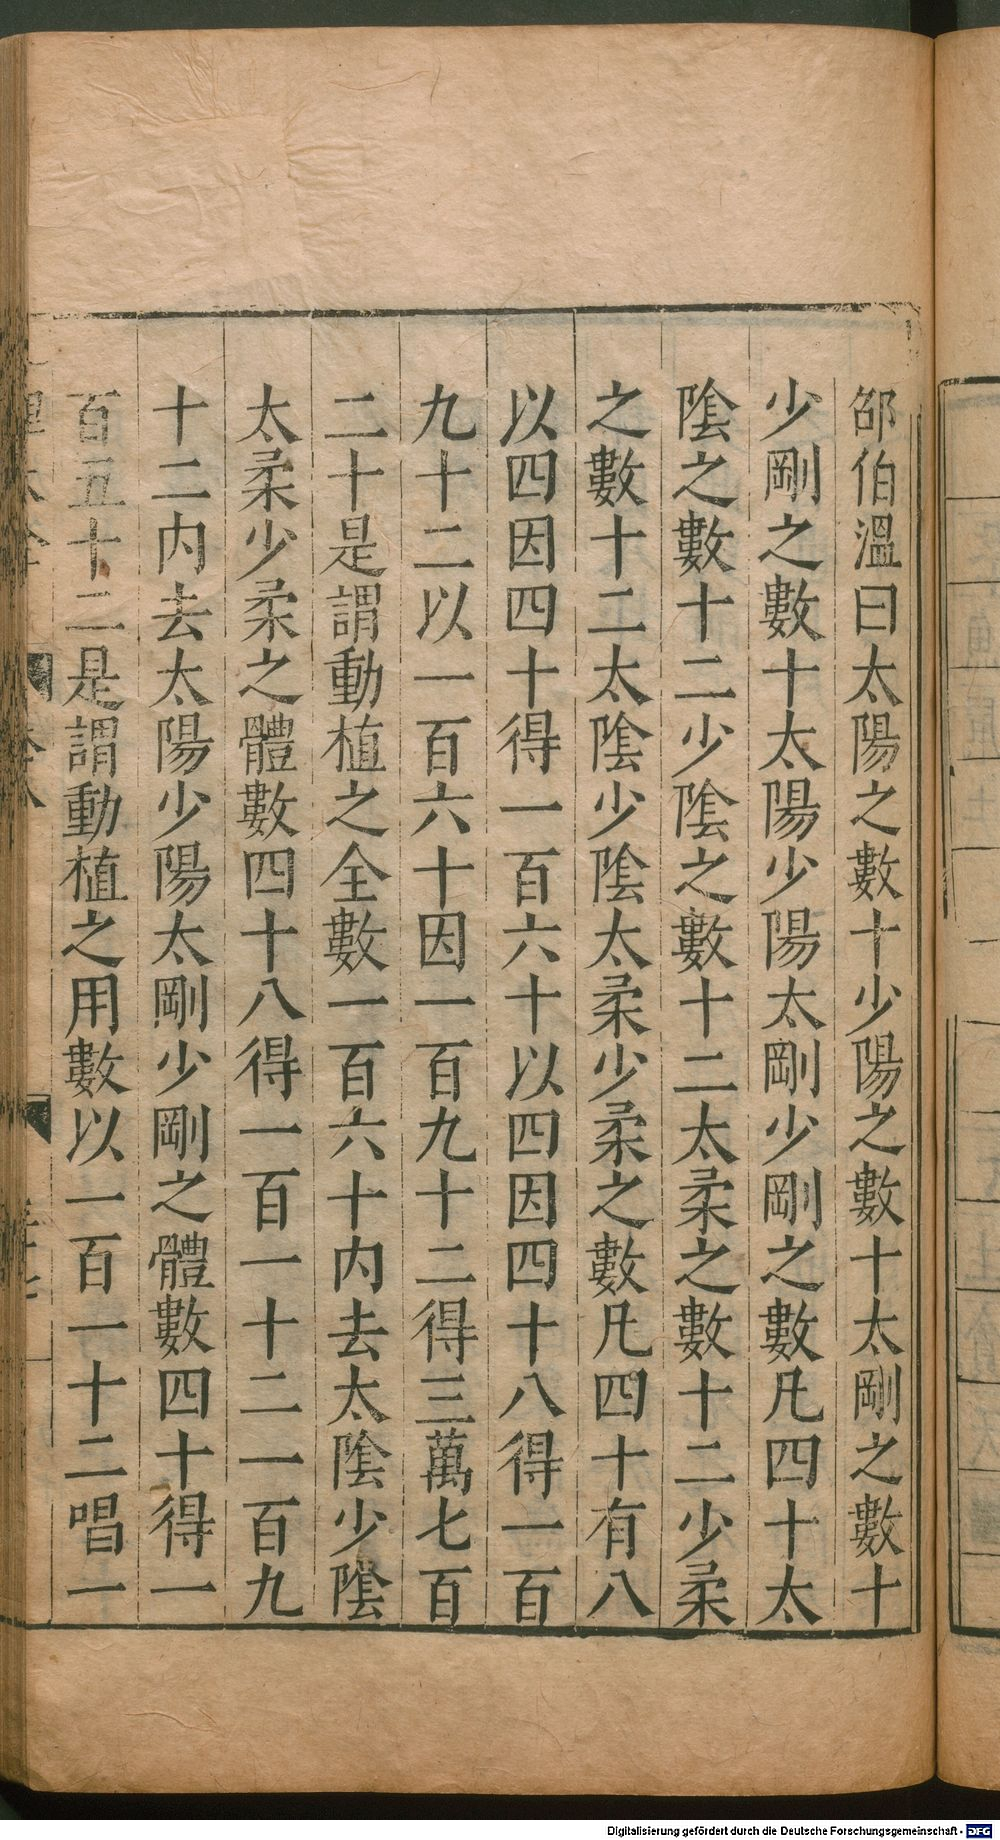 邵伯溫曰太陽之數十少陽之數十太剛之數十
少剛之數十太陽少陽太剛少剛之數凡四十太
陰之數十二少陰之數十二太柔之數十二少柔
之數十二太陰少陰太柔少柔之數凡四十有八
以四因四十得一百六十以四因四十八得一百
九十二以一百六十因一百九十二得三萬七百
二十是謂動植之全數一百六十內去太陰少陰
太柔少柔之體數四十八得一百一十二一百九
十二內去太陽少陽太剛少剛之體數四十得一
百五十二是謂動植之用數以一百一十二唱一
Digitalisierung gefördert durch die Deutsche Forschungsgemeinschaft - DFG